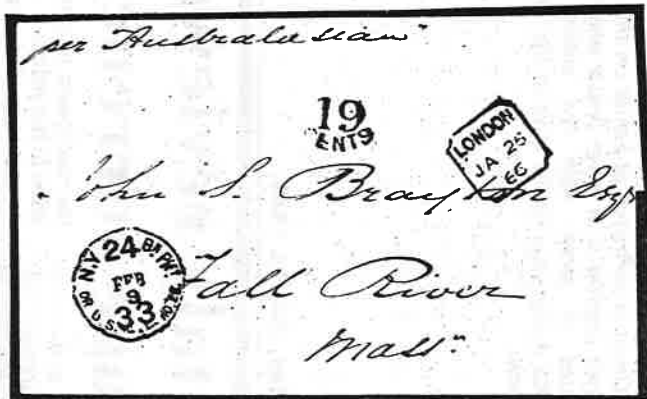 per Australasian"
19
CENTS
LONDON
JA 25
66
John S. Brayton Esqr
N.Y. 24 BR PKT
FEB
9
33
U.S.
Fall River
Mass"